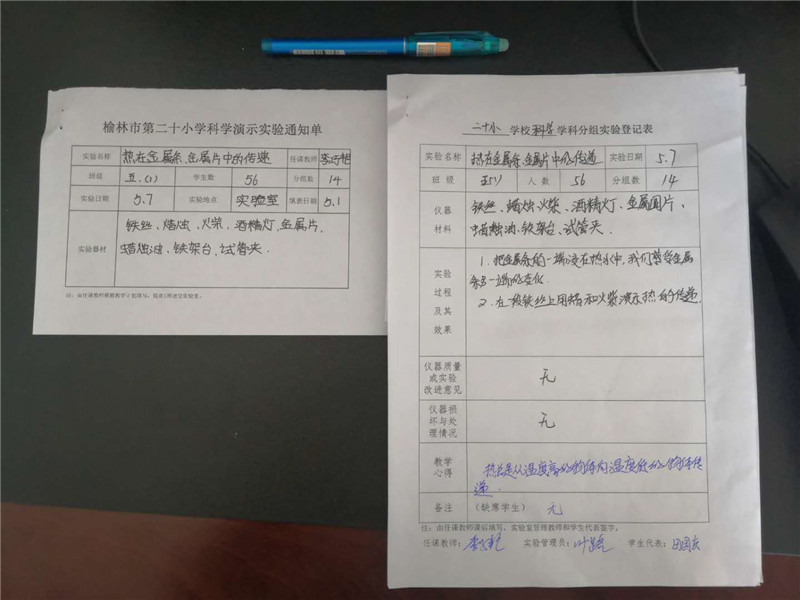 榆林市第二十小学科学演示实验通知单
实验名称 热在金属条、金属片中的传递 任课教师
班级 五.(1) 学生数 56 分组数 14
实验日期 5.7 实验地点 实验室 填表日期 5.1
实验器材 铁丝、蜡烛、火柴、酒精灯、金属片、
蜡烛油、铁架台、试管夹.
二十小 学校 科学 学科分组实验登记表
实验名称 热在金属条、金属片中的传递 实验日期 5.7
班级 五(1) 人数 56 分组数 14
仪器
材料
铁丝、蜡烛、火柴、酒精灯、金属圆片、
蜡烛油、铁架台、试管夹.
实验
过程
及其
效果
1. 把金属条的一端浸在热水中,我们
条另一端的变化.
2. 在一根铁丝上用蜡和火柴演示热的传递.
仪器质量
或实验
改进意见
无
仪器损
坏与处
理情况
无
教学
心得
热总是从温度高的物体向温度低的物体传
递.
备注 (缺席学生) 无
注:由任课教师课后填写,实验室管理教师和学生代表签字。
任课教师: 实验管理员: 学生代表: 田国庆